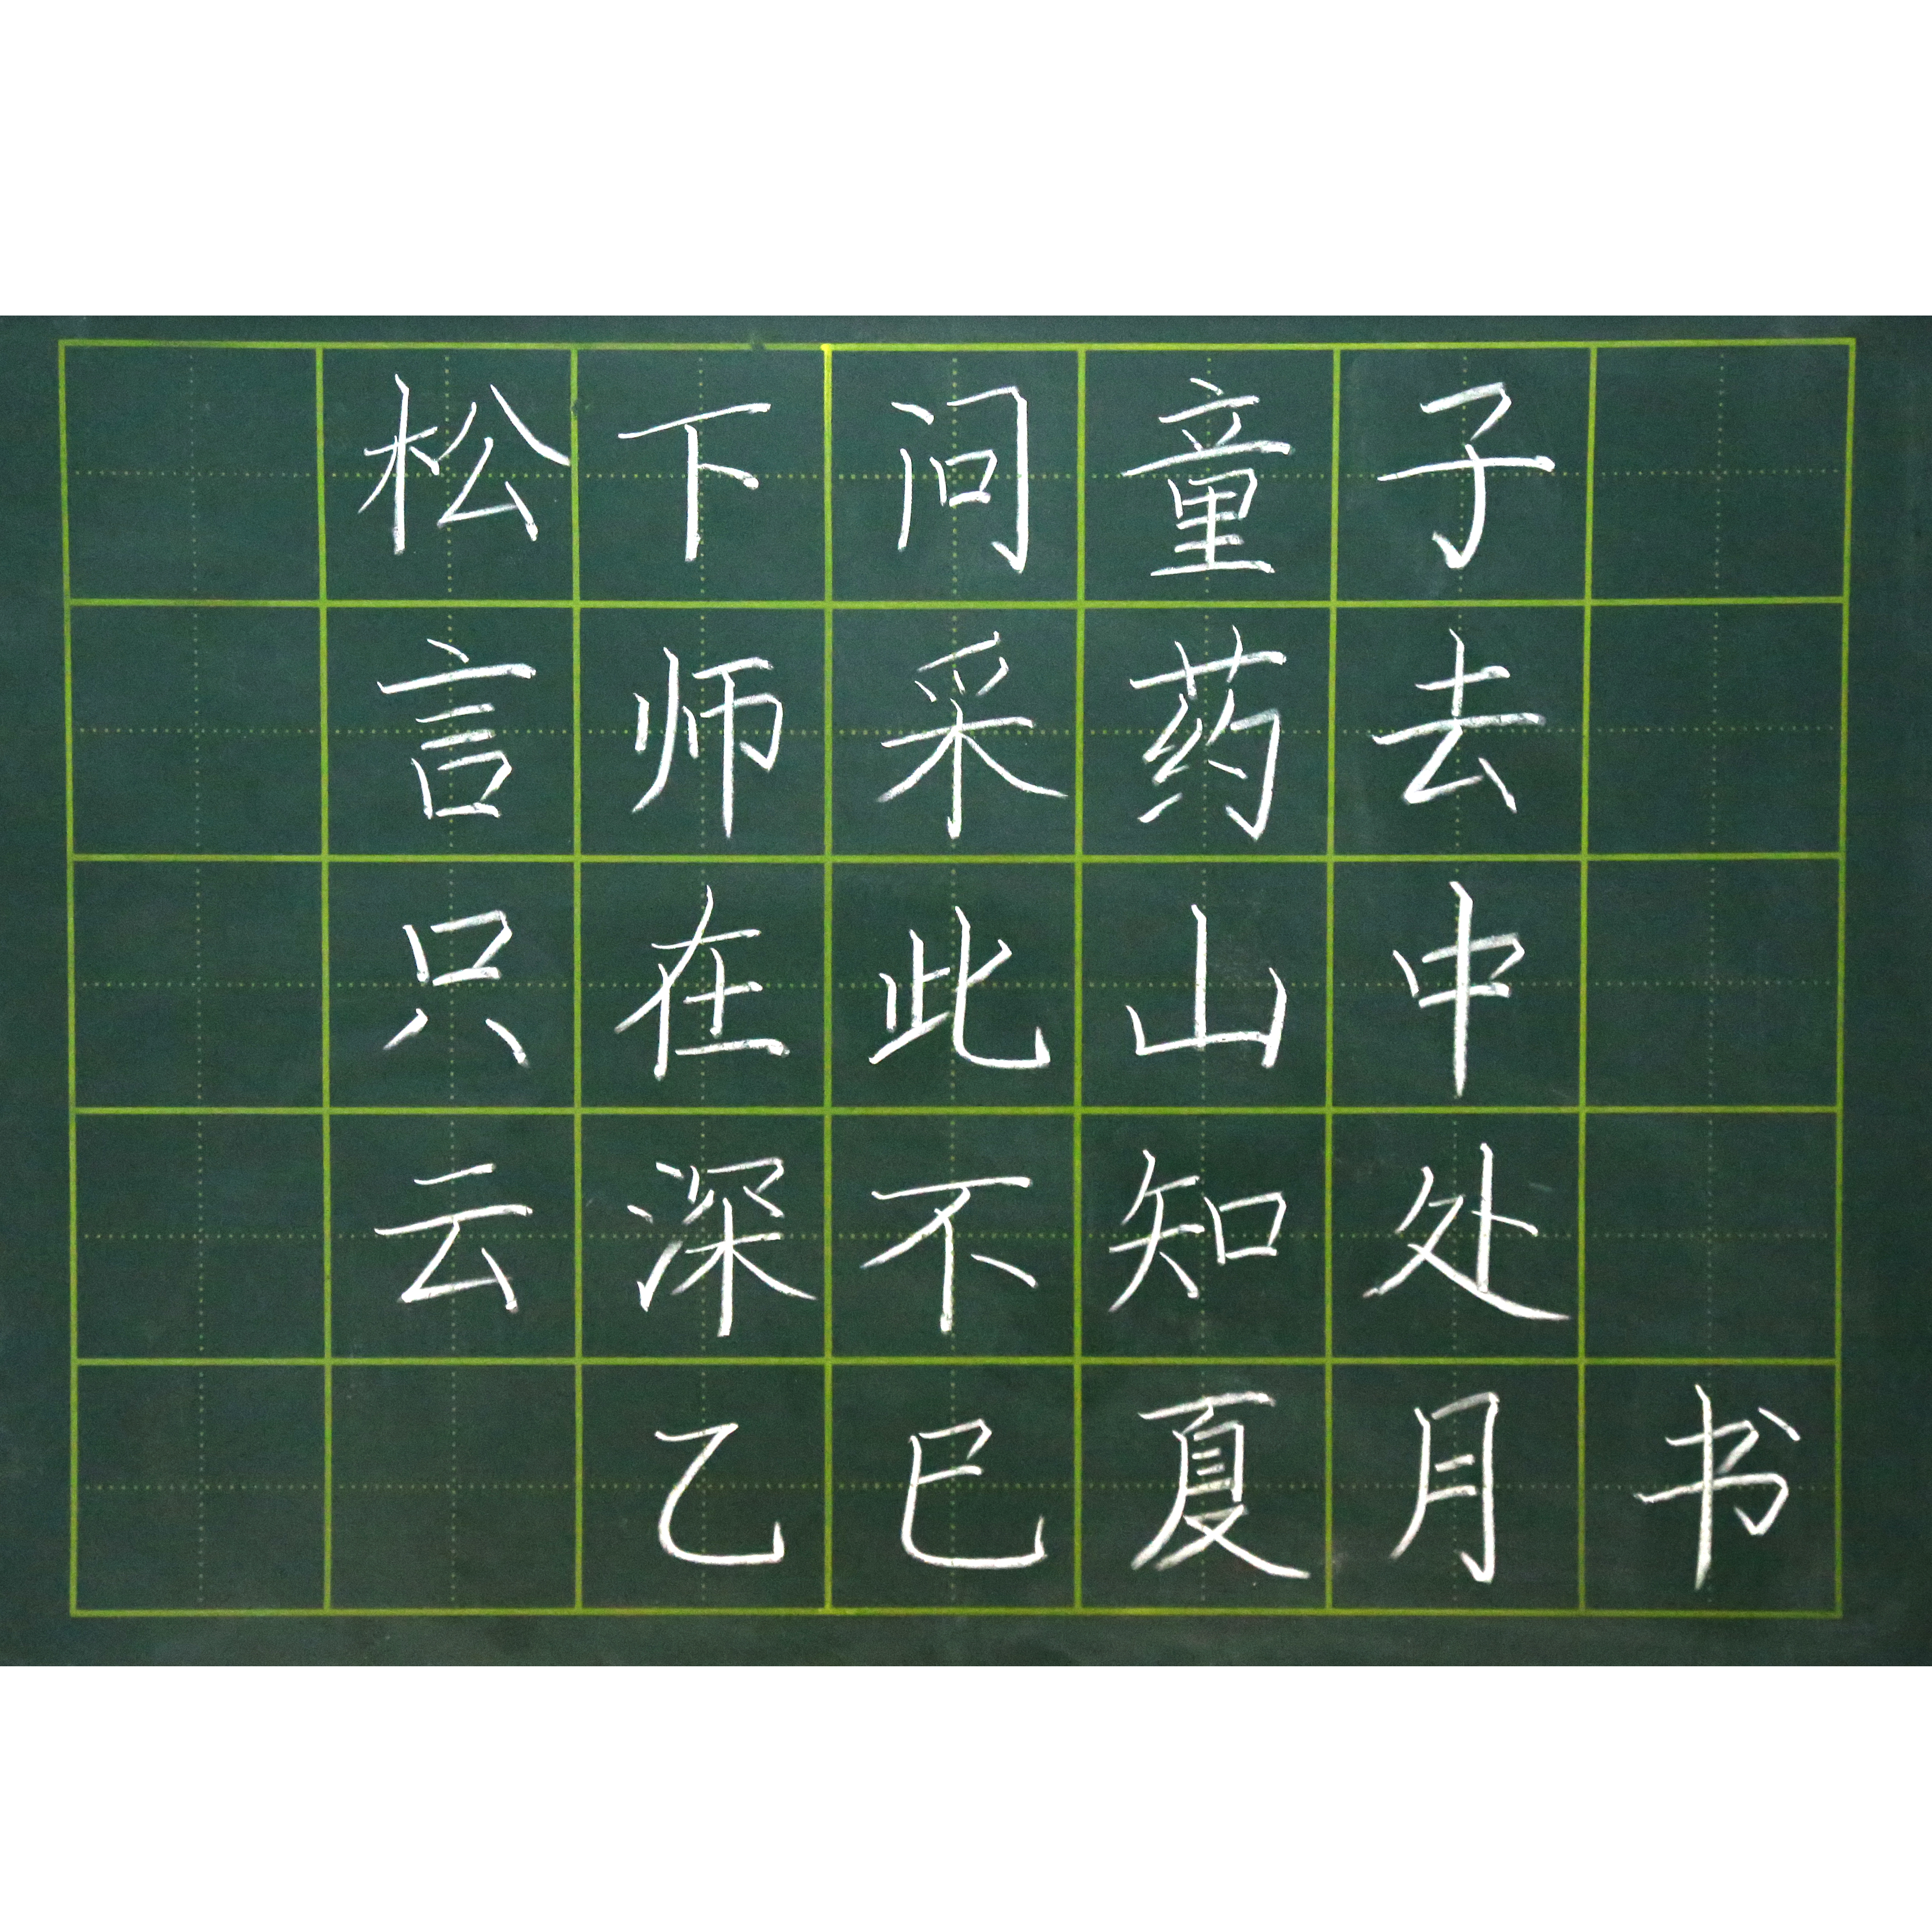 松下问童子
言师采药去
只在此山中
云深不知处
乙巳夏月书